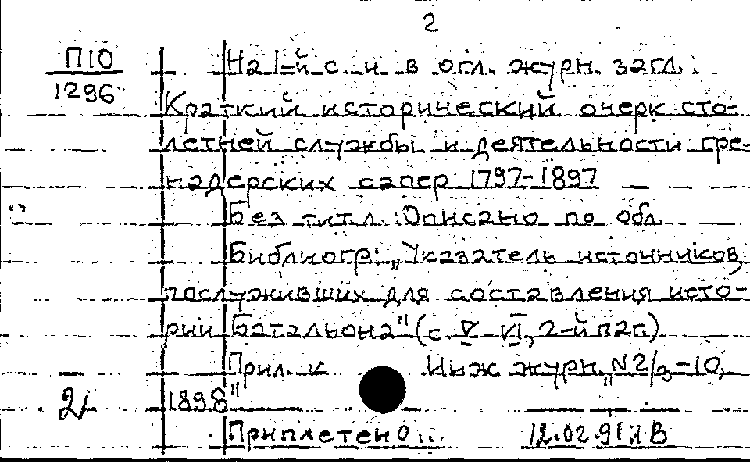 2
П10
1296
На 1-й с. и в огл. журн. загл.:
Краткий исторический очерк сто-
летней службы и деятельности гре-
надерских сапер 1797-1897
Без тит.л. Описано по обл.
Библиогр.: „Указатель источников,
послуживших для составления исто-
рии батальона" (с. V-VI, 2-й паг.)
Прил. к Инж журн., N2/3-10,
1898"
2
Приплетено...
12.02.91 В